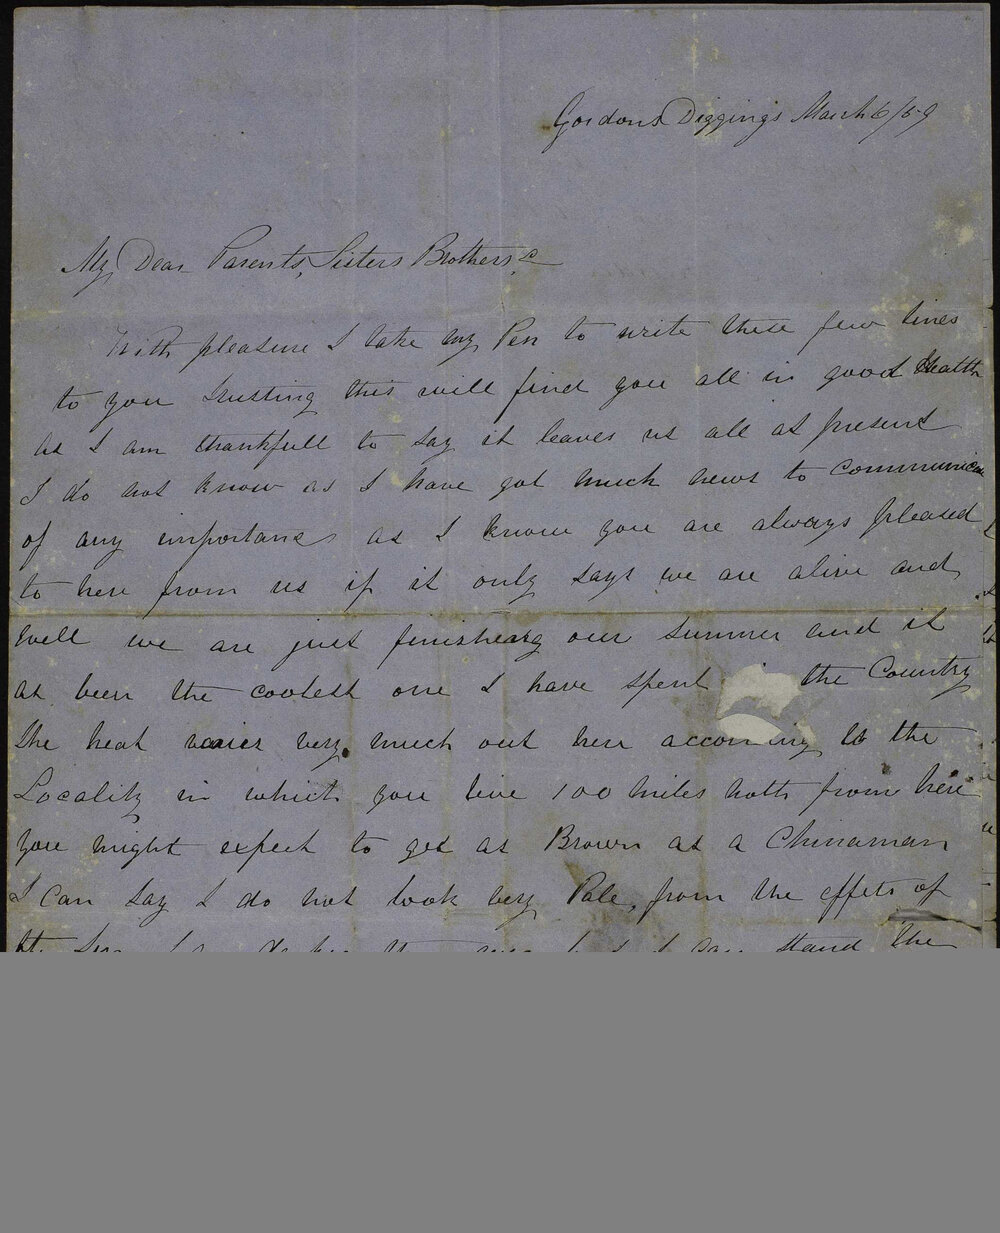 Gordons Diggings March 6/59
My Dear Parents, Sisters Brothers, &
With pleasure I take my Pen to write these few lines
to you trusting this will find you all in good Health
as I am thankfull to say it leaves us all at present
I do not know as I have got much news to communica
of any importance as I know you are always pleased
to here from us if it only says we are alive and
well we are just finisheing our summer and it
as been the coolest one I have spent the Country
the heat varies very much out here accor ing to the
Locality in which you live 100 miles noth from here
you might expect to get as Brown as a Chinaman
I can say I do not look very Pale, from the effets of
stand the